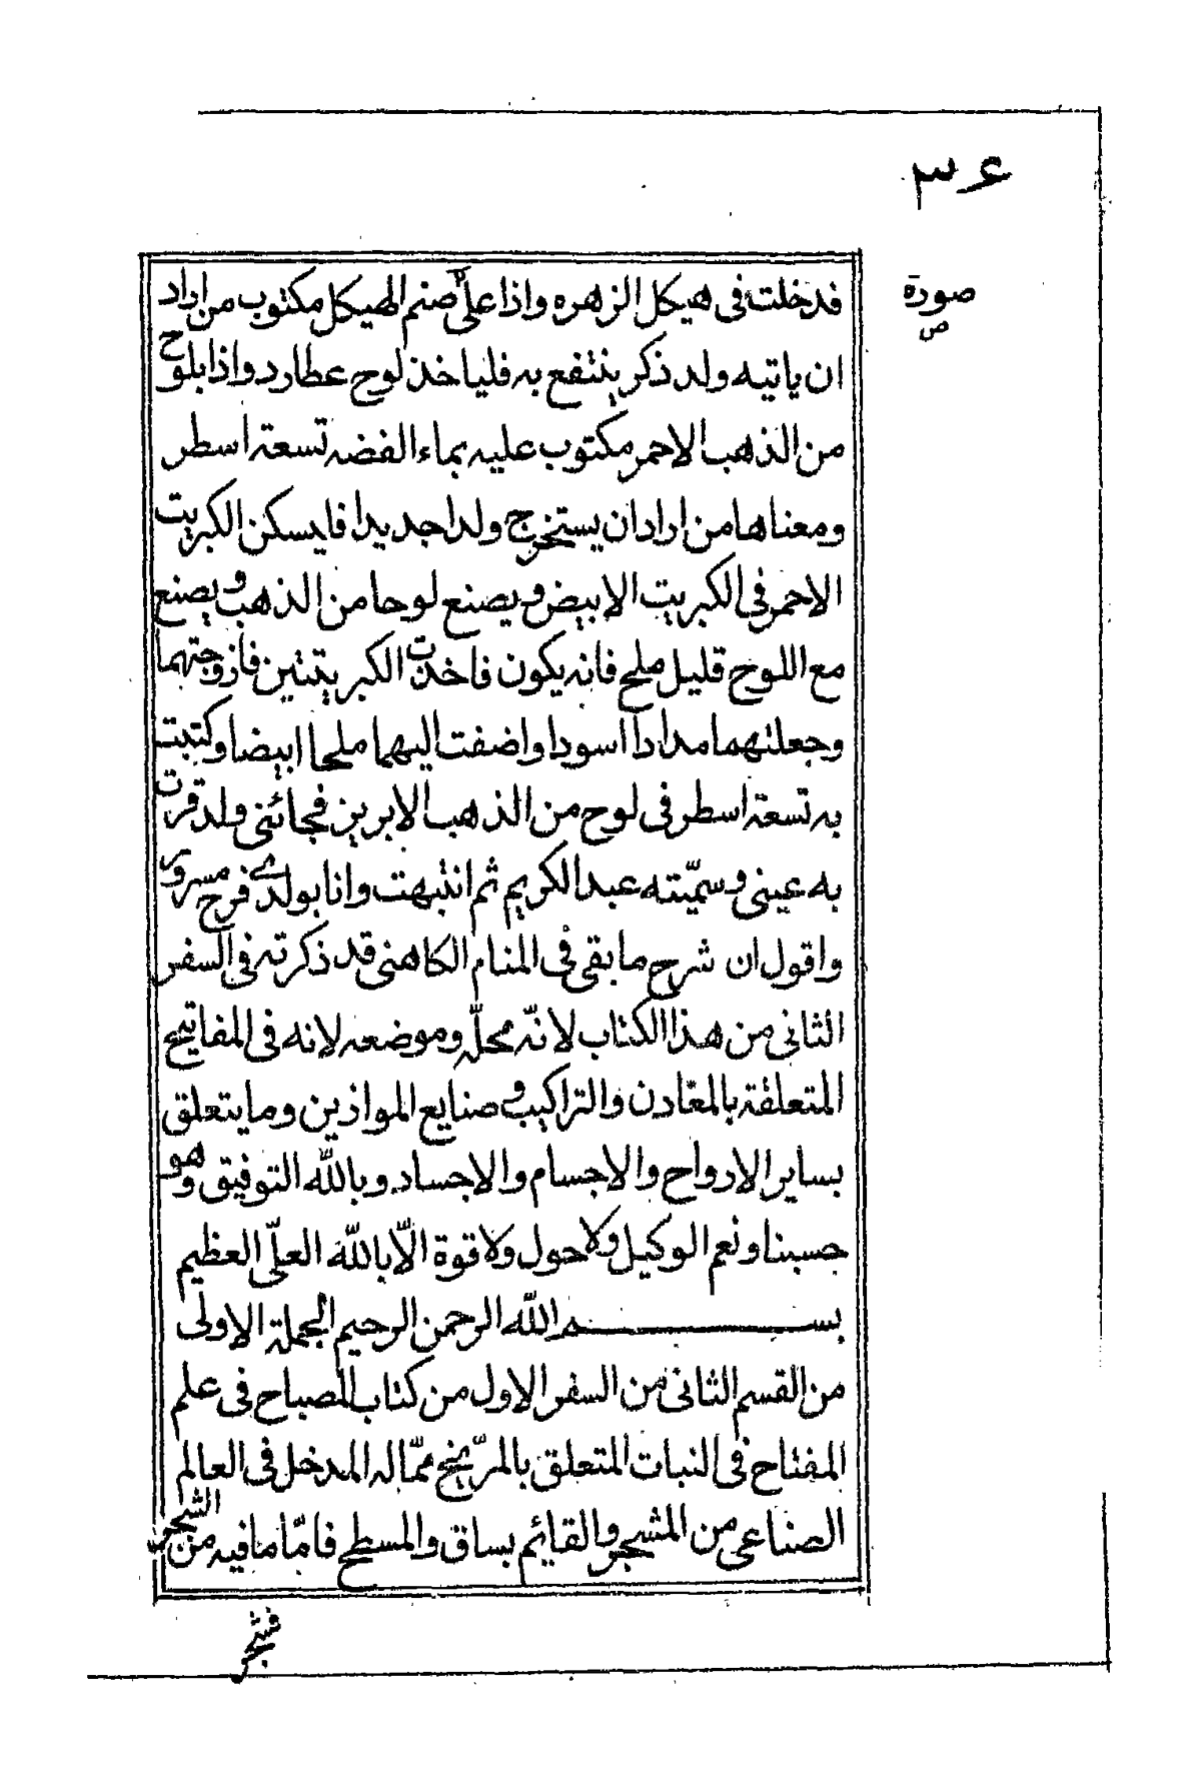 ٣٤
صورة
ص
فدخلت فى هيكل الزهره واذا على صنم الهيكل مكتوب من اراد
ان ياتيه ولد ذكر ينتفع به فلياخذ لوح عطارد واذا بلوح
من الذهب الاحمر مكتوب عليه بماء الفضه تسعة اسطر
ومعناها من اراد ان يستخرج ولدا جديدا فايسكن الكبريت
الاحمر فى الكبريت الابيض ويصنع لوحا من الذهب ويصنع
مع اللوح قليل ملح فانه يكون فاخذت الكبريتتين فازوجتهما
وجعلتهما مدادا اسودا واضفت اليهما ملحا ابيضا وكتبت
به تسعة اسطر فى لوح من الذهب الابريز فجائنى ولد قرت
به عينى وسمّيته عبد الكريم ثم انتبهت وانا بولدى فرح مسرور
واقول ان شرح ما بقى فى المنام الكاهنى قد ذكرته فى السفر
الثانى من هذا الكتاب لانّه محلّه وموضعه لانه فى المفاتيح
المتعلقة بالمعادن والتراكيب وصنايع الموازين وما يتعلق
بساير الارواح والاجسام والاجساد وبالله التوفيق وهو
حسبنا ونعم الوكيل ولا حول ولا قوة الّا بالله العلّى العظيم
بسم الله الرحمن الرحيم الجملة الاولى
من القسم الثانى من السفر الاول من كتاب المصباح فى علم
المفتاح فى النبات المتعلق بالمرّيخ ممّا له المدخل فى العالم
الصناعى من المشجر والقايم بساق والمسطح فامّا ما فيه من الشجر
فشجر